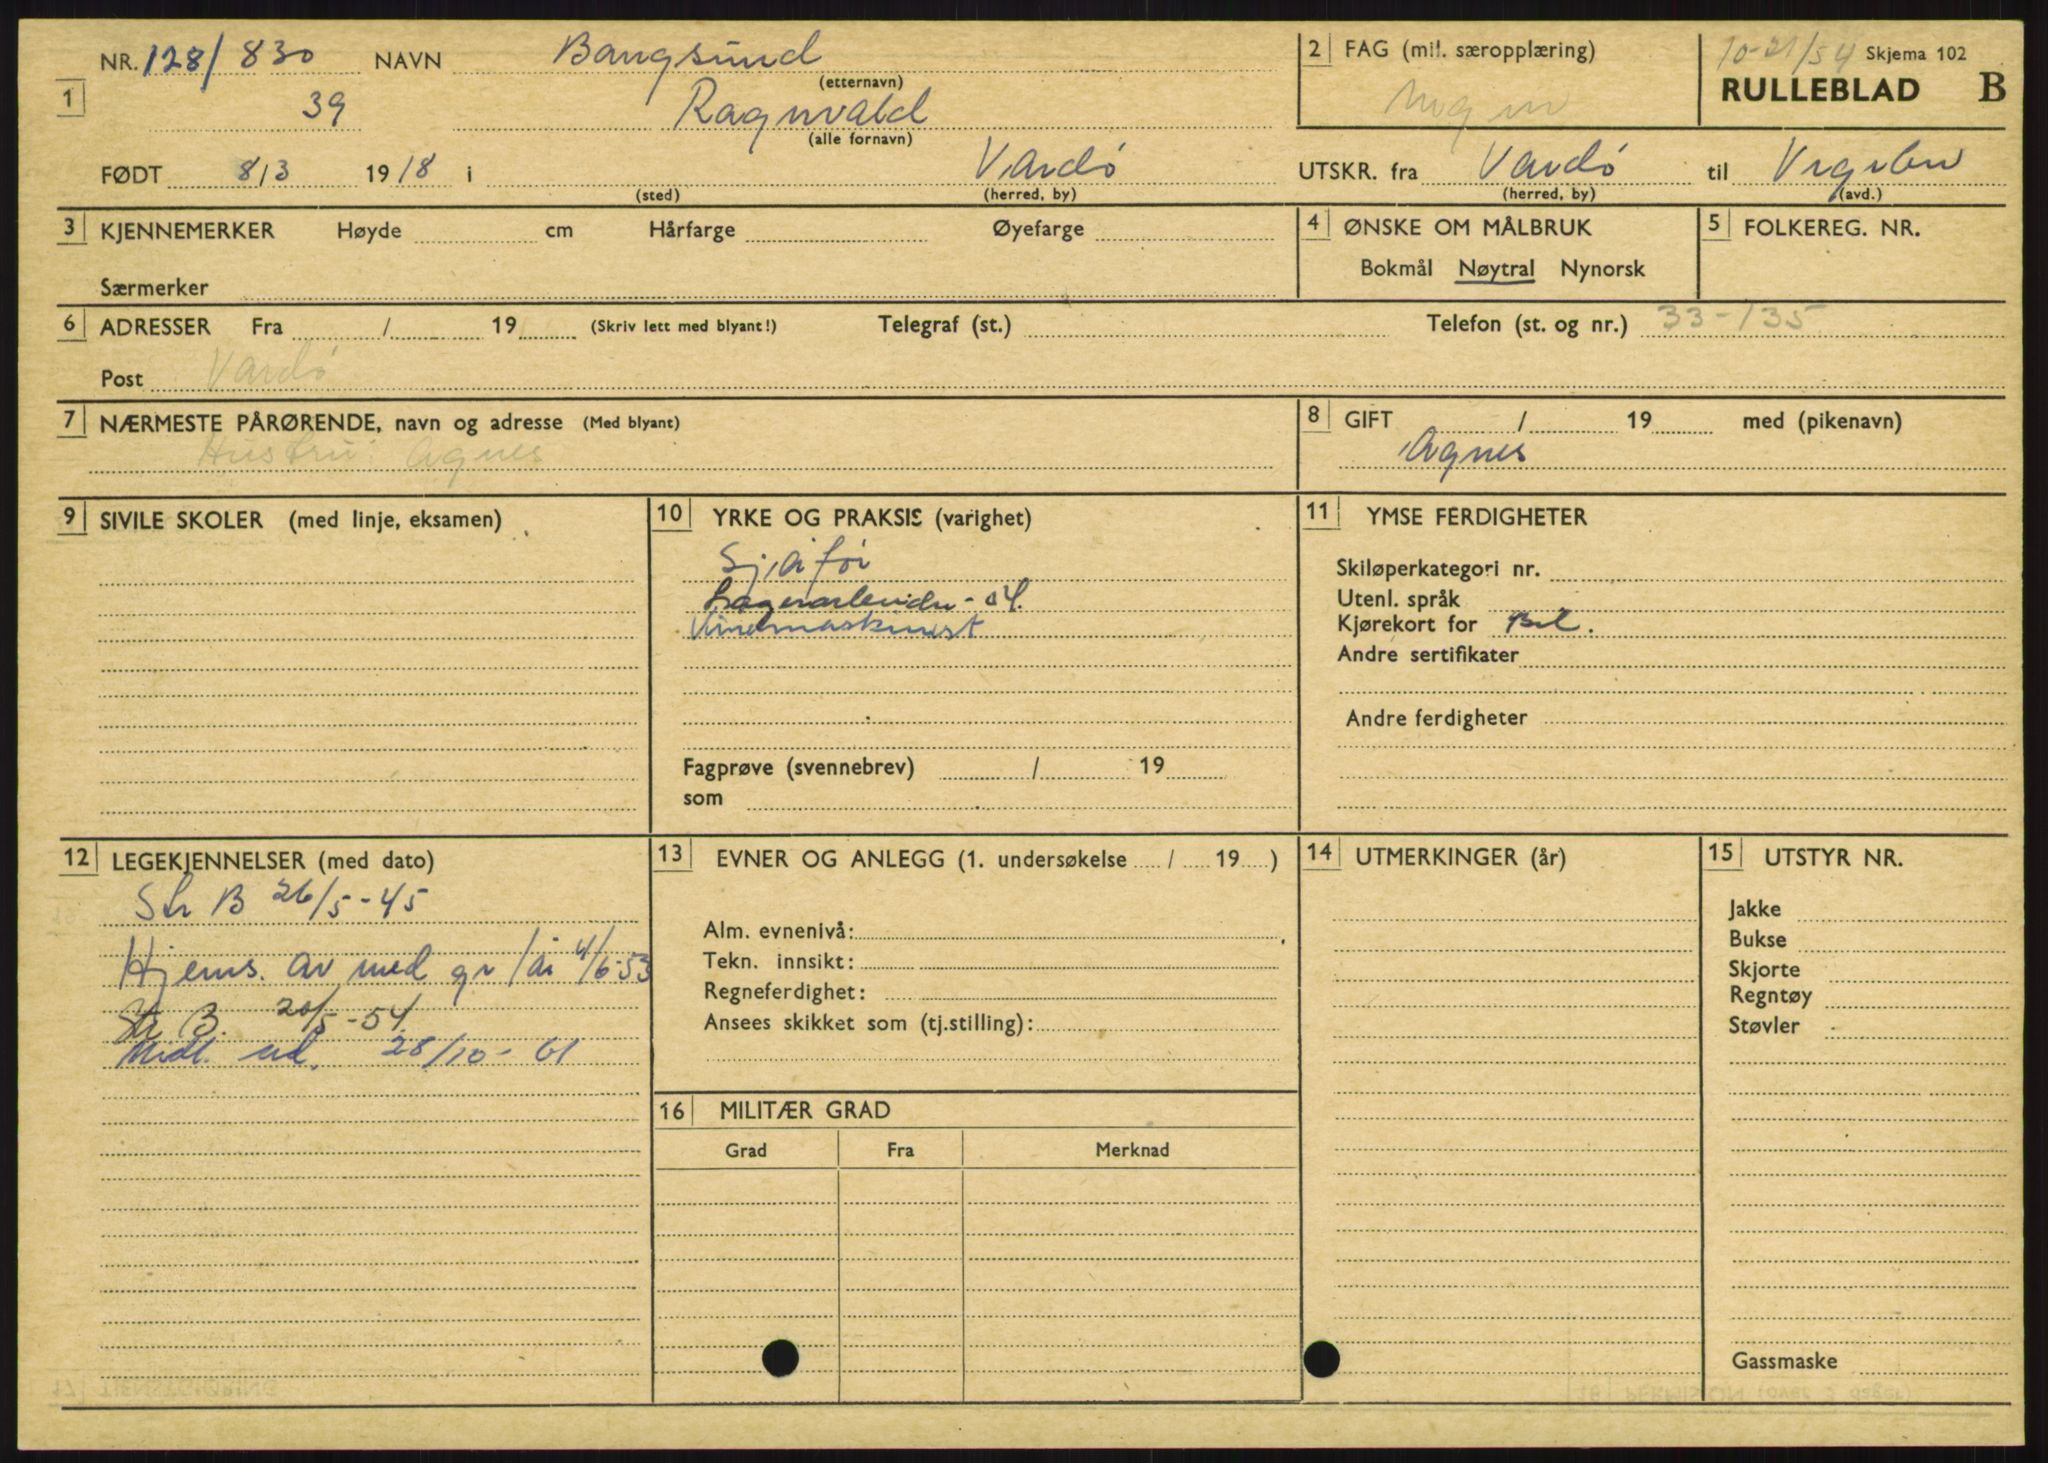 NR. 128/830 NAVN Bangsund
(etternavn)
1 39 Ragnvald
(alle fornavn)
FØDT 8/3 1918 i Vardø
(sted) (herred, by)
2 FAG (mil. særopplæring)
10-21/54 Skjema 102
RULLEBLAD B
UTSKR. fra Vardø til
(herred, by) (avd.)
3 KJENNEMERKER Høyde cm Hårfarge Øyefarge
Særmerker
4 ØNSKE OM MÅLBRUK
Bokmål Nøytral Nynorsk
5 FOLKEREG. NR.
6 ADRESSER Fra / 19 (Skriv lett med blyant!) Telegraf (st.) Telefon (st. og nr.) 33-135
Post Vardø
7 NÆRMESTE PÅRØRENDE, navn og adresse (Med blyant)
Hustru: Agnes
8 GIFT / 19 med (pikenavn)
Agnes
9 SIVILE SKOLER (med linje, eksamen)
10 YRKE OG PRAKSIS (varighet)
Sjåfør
Lagerarbeider - 54.
Fagprøve (svennebrev) / 19
som
11 YMSE FERDIGHETER
Skiløperkategori nr.
Utenl. språk
Kjørekort for Bil.
Andre sertifikater
Andre ferdigheter
12 LEGEKJENNELSER (med dato)
Str B 26/5-45
Hjems. av med gr 1 år 4/6-53
Str B. 20/5-54
Midl. ud. 28/10-61
13 EVNER OG ANLEGG (1. undersøkelse / 19 )
Alm. evnenivå:
Tekn. innsikt:
Regneferdighet:
Ansees skikket som (tj.stilling):
14 UTMERKINGER (år)
15 UTSTYR NR.
Jakke
Bukse
Skjorte
Regntøy
Støvler
Gassmaske
16 MILITÆR GRAD
Grad Fra Merknad